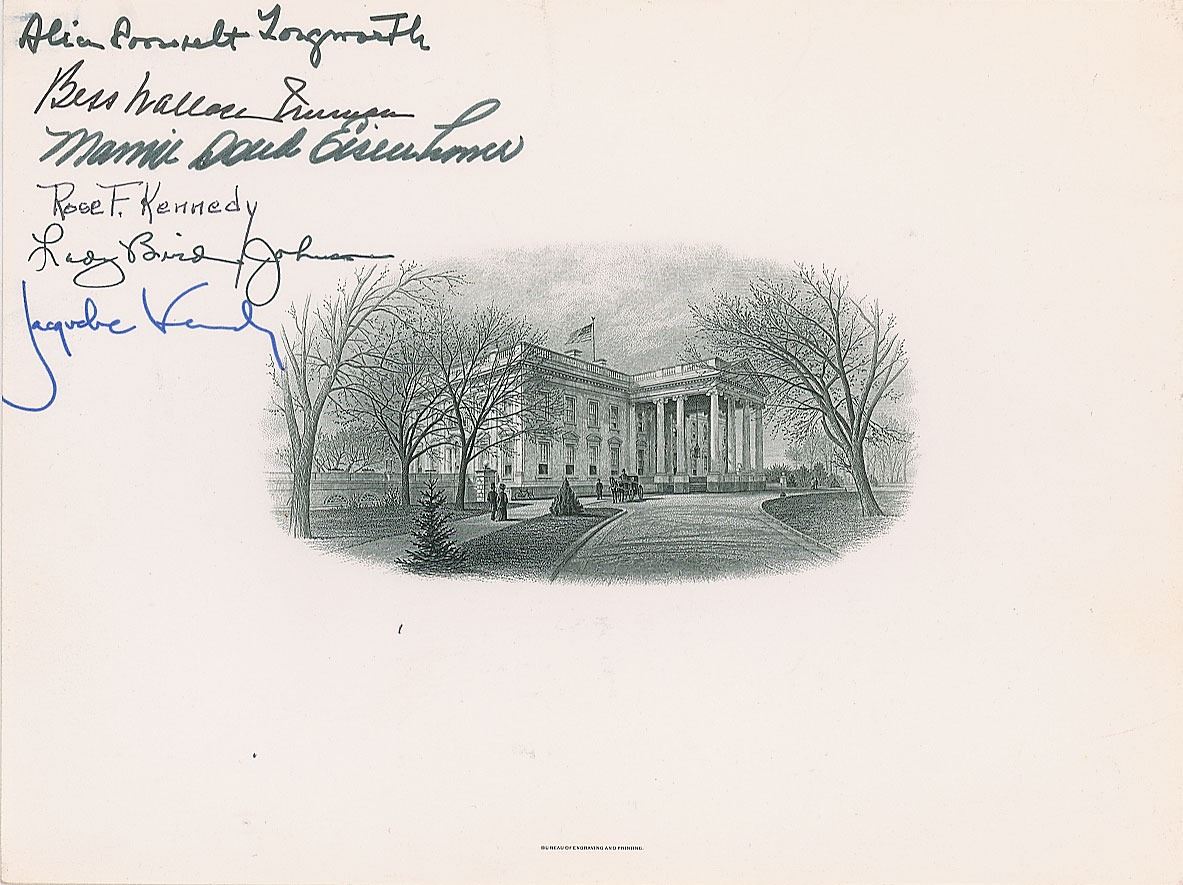 Alice Roosevelt Longworth
Bess Wallace Truman
Mamie Doud Eisenhower
Rose F. Kennedy
Lady Bird Johnson
Jacqueline Kennedy
BUREAU OF ENGRAVING AND PRINTING.